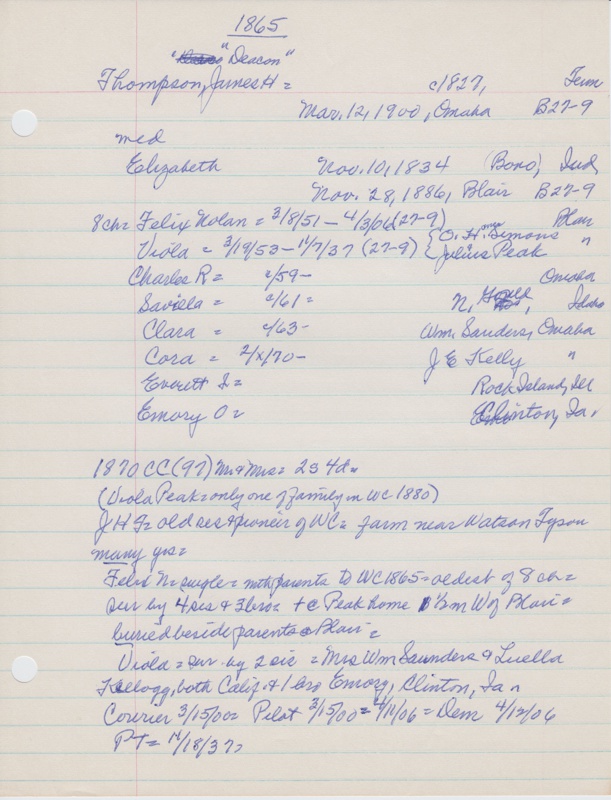 1865
" " Deacon"
Thompson, James H = c/1827, Tenn
Mar. 12, 1900, Omaha B27-9
med
Elizabeth Nov. 10, 1834 (Bono, Ind
Nov. 28, 1886, Blair B27-9
8ch = Felix Nolan = 3/8/51 - 4/3/06 (27-9) Blair
Viola = 3/19/53 - 11/7/37 (27-9) { O. H. Simons "
Julius Peak
Charles R = c/59 - Omaha
Saviela = c/61 = N, , Idaho
Clara = c/63 - Wm. Sanders, Omaha
Cora = 2/x/70 - J E Kelly "
Everett I = Rock Island, Ill
Emory O = Clinton, Ia.
1870 CC (97) Mr & Mrs = 2s 4d =
(Viola Peak = only one of family in WC 1880)
J H T = old res & pioneer of WC = farm near Watson Tyson
many yrs =
Felix N = single = with parents to WC 1865 = oldest of 8 ch =
sur by 4 sis & 3 bros = + @ Peak home 1½ m W of Blair =
buried beside parents @ Blair =
Viola = sur. by 2 sis = Mrs Wm Saunders & Luella
Kellogg, both Calif. & 1 bro Emory, Clinton, Ia =
Courier 3/15/00 = Pilot 3/15/00 = 4/11/06 = Dem 4/12/06
PT = 11/18/37 =